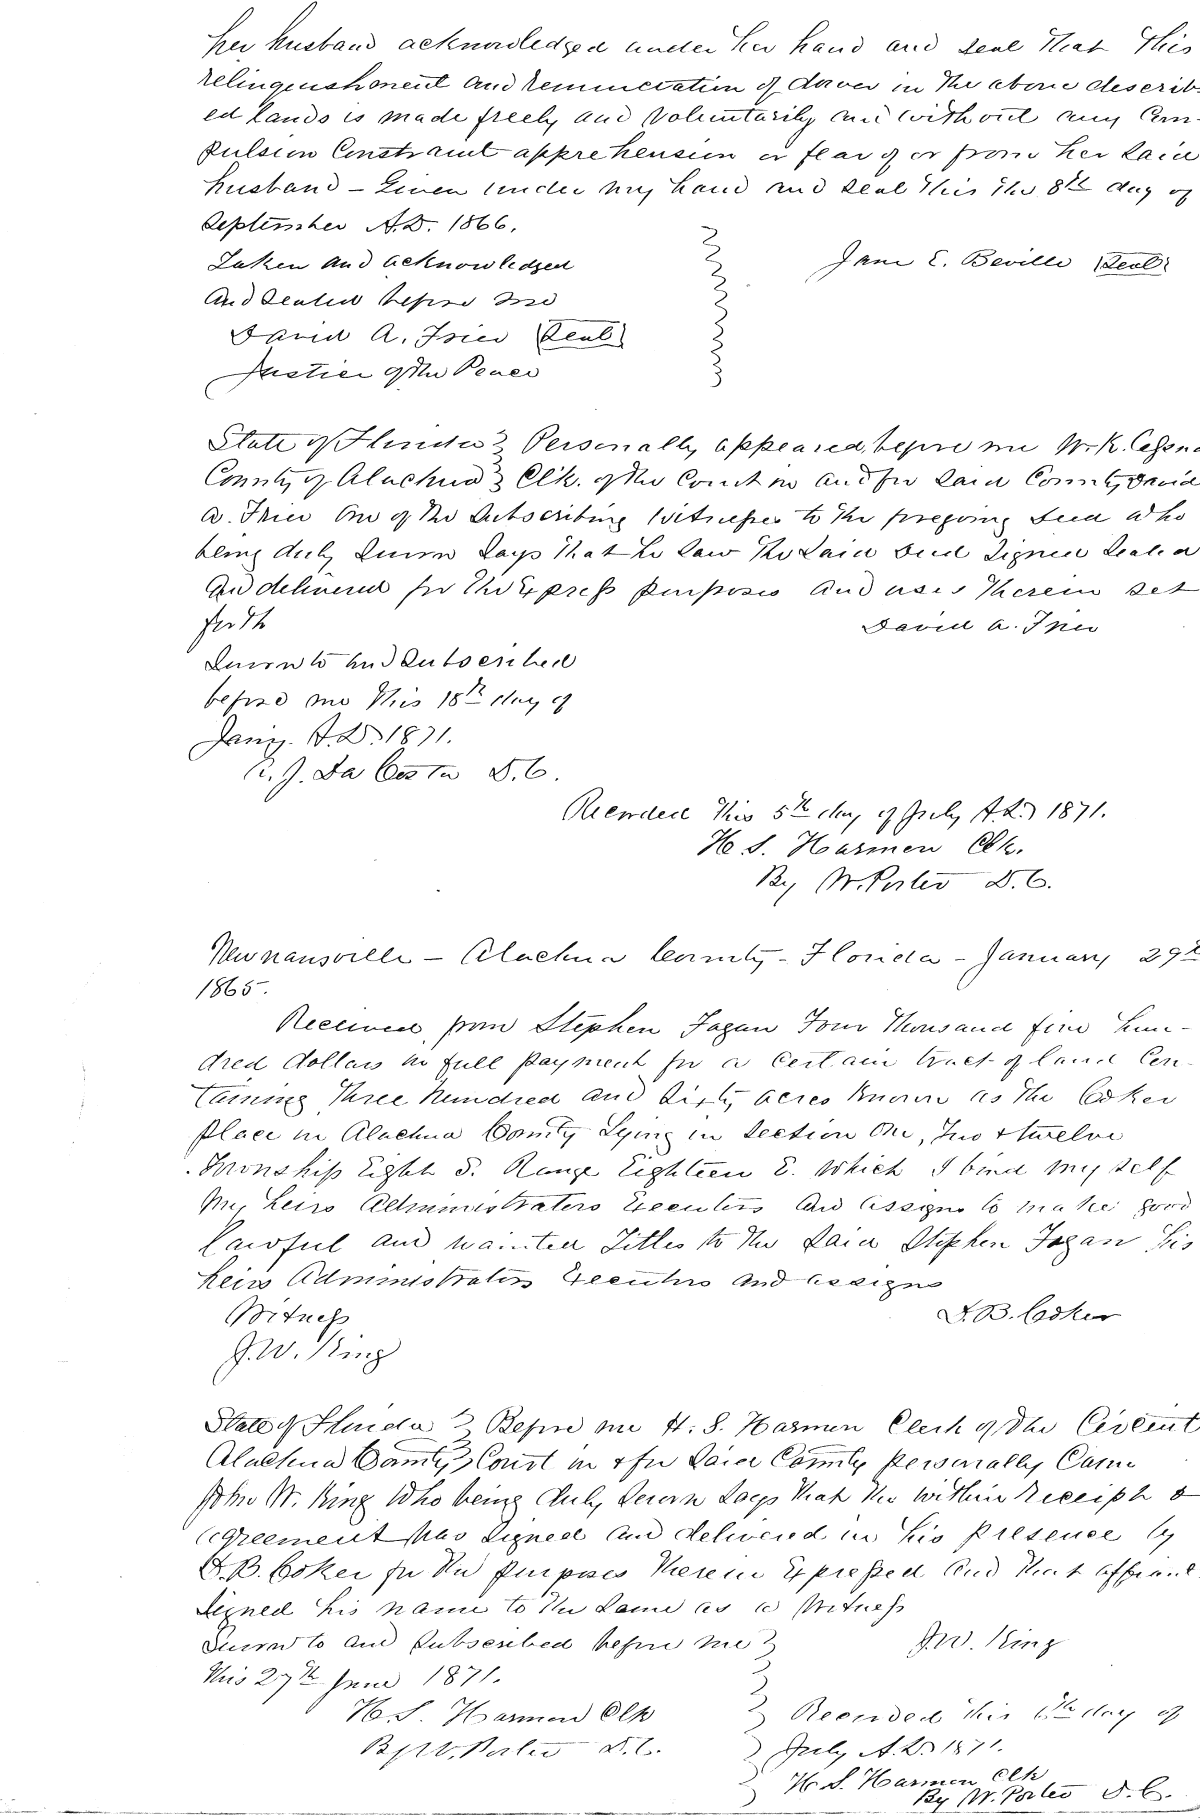 her husband acknowledged under her hand and seal that this
relinquishment and renunciation of dower in the above describ-
ed lands is made freely and voluntarily and without any Com-
pulsion Constraint apprehension or fear of or from her said
husband – Given under my hand and seal this the 8th day of
September A.D. 1866.
Taken and acknowledged
And sealed before me
Jane E. Beville (Seal)
David A. Frier (Seal)
Justice of the Peace
State of Florida } Personally appeared before me W. K. Cessna
County of Alachua } Clk. of the Court in and for said County David
A. Frier One of the Subscribing Witnesses to the foregoing deed who
being duly Sworn Says that he saw the said deed Signed Sealed
And delivered for the Express purposes and uses therein set
forth
David A. Frier
Sworn to and Subscribed
before me this 18th day of
Jany. A.D. 1871.
R. J. Da Costa D.C.
Recorded this 5th day of July A.D. 1871.
H. S. Harmon Clk.
By W. Porter D.C.
Newnansville – Alachua County – Florida – January 29th
1865.
Received from Stephen Fagan Four Thousand five hun-
dred dollars in full payment for a certain tract of land Con-
taining three hundred and sixty acres known as the Coker
place in Alachua County Lying in Section One, Two & twelve
Township Eight S. Range Eighteen E. which I bind my self
my heirs Administrators Executors and assigns to make good
lawful and warrented Titles to the said Stephen Fagan his
heirs Administrators Executors and assigns
Witness
F. B. Coker
J. W. King
State of Florida } Before me H. S. Harmon Clerk of the Circuit
Alachua County } Court in & for said County personally Came
John W. King Who being duly Sworn Says that the within Receipt &
agreement was signed and delivered in his presence by
F. B. Coker for the purposes therein Expressed and that affiant
signed his name to the same as a Witness
Sworn to and Subscribed before me }
J. W. King
this 27th June 1871.
H. S. Harmon Clk
By W. Porter D.C.
Recorded this 6th day of
July A.D. 1871.
H. S. Harmon Clk
By W. Porter D.C.